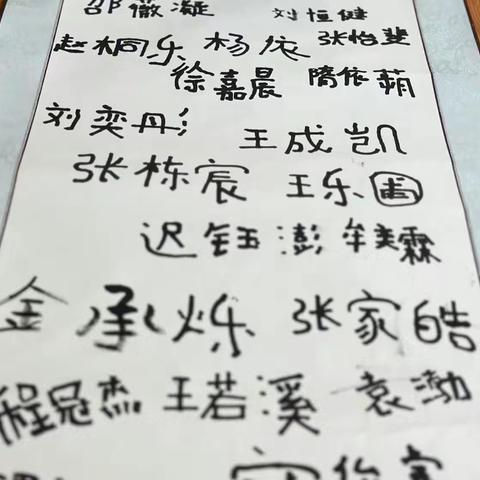 邵薇凝 刘恒健
赵桐乐 杨依 张怡斐
徐嘉晨 隋依蘋
刘奕彤
王成凯
张栋宸 王乐圃
迟钰澎 牟美霖
金承烁 张家皓
程冠杰 王若溪 袁渤